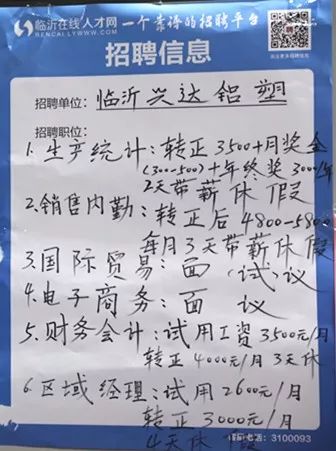 临沂在线人才网 一个靠谱的招聘平台
RENCALLYWWW.COM
招聘信息
招聘单位：临沂兴达铝塑
招聘职位：
1.生产统计：转正3500+月奖金
(300-500)+年终奖3000/年
2天带薪休假
2.销售内勤：转正后4800-5800
每月3天带薪休假
3.国际贸易：面(试)议
4.电子商务：面议
5.财务会计：试用工资3500元/月
转正4000元/月3天休
6.区域经理：试用2600元/月
转正3000元/月
4天休假
电话：3100093